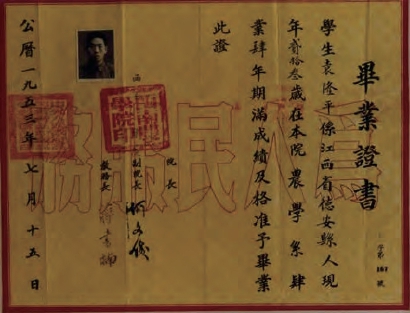 畢業證書
學生袁隆平係江西省德安縣人現
年貳拾叁歲在本院農學系肆
業肆年期滿成績及格准予畢業
此證
院長
副院長
教務長
公曆一九五三年七月十五日
為人民服務